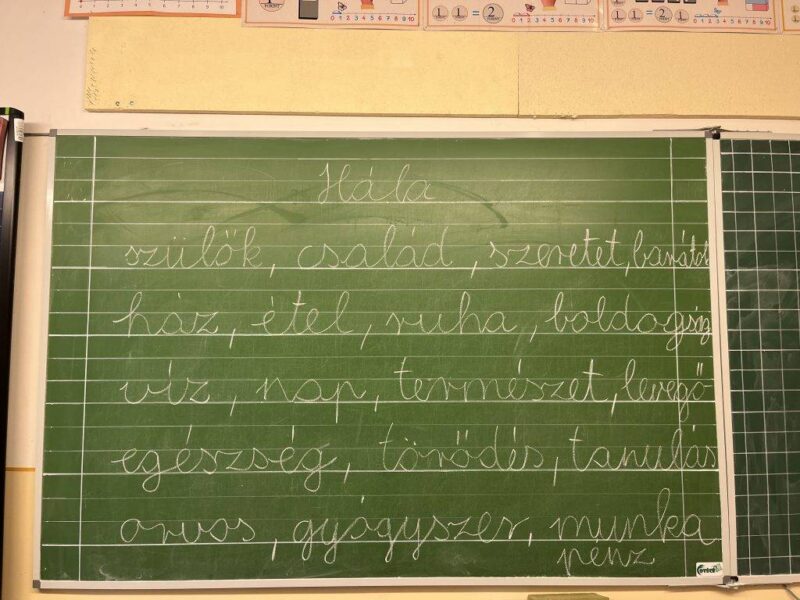 Hála
szülők, család, szeretet, barátok
ház, étel, ruha, boldogság
víz, nap, természet, levegő
egészség, törődés, tanulás
orvos, gyógyszer, munka
pénz